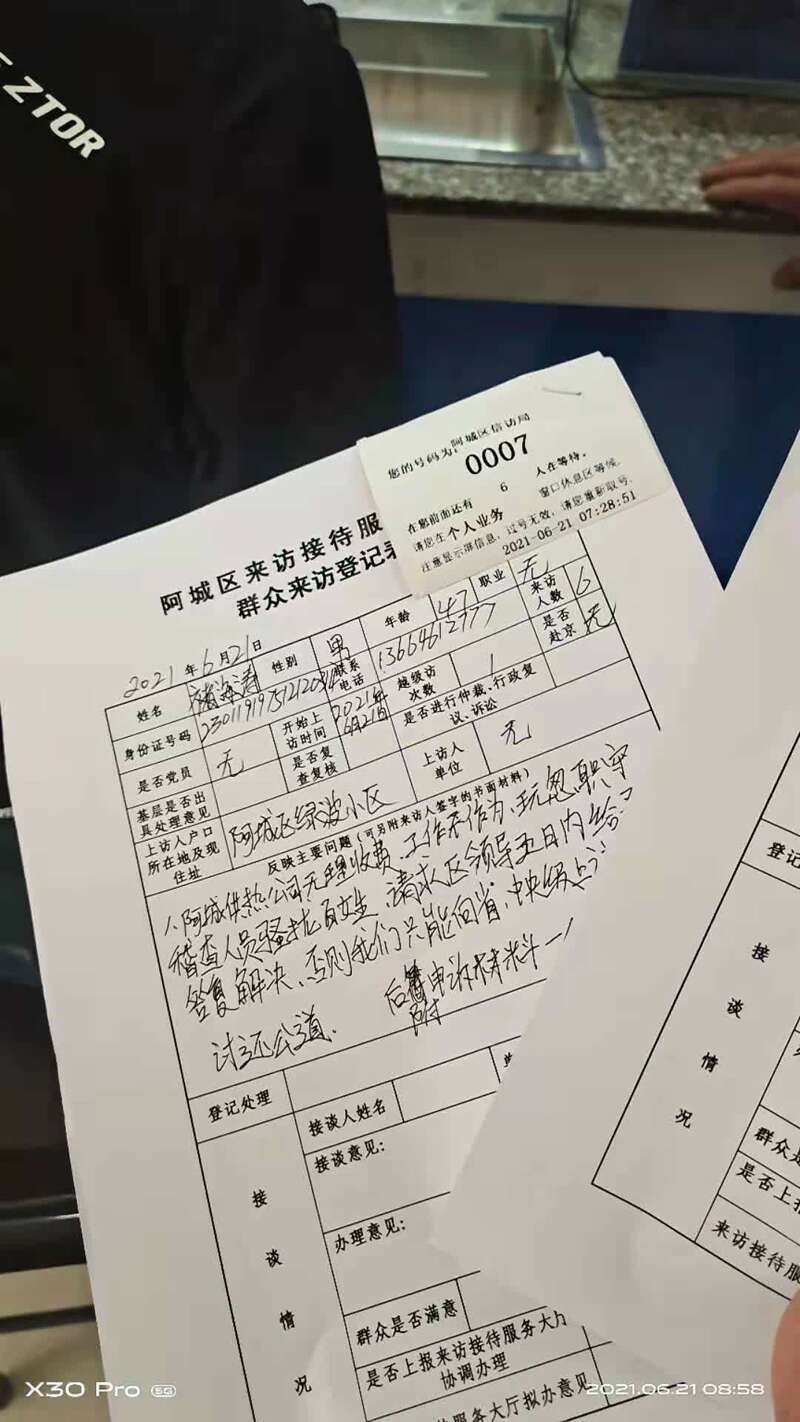 ZTOR
您的号码为阿城区信访局
0007
在您前面还有 6 人在等待。
请您在个人业务 窗口休息区等候,
注意显示屏信息,过号无效,请您重新取号。
2021-06-21 07:28:51
阿城区来访接待服
群众来访登记表
2021年6月21日
姓名 海涛 性别 男 年龄 47 职业 无 来访人数 6
身份证号码 联系电话 13664612777 是否赴京 无
是否党员 无 开始上访时间 2021年6月21日 越级访次数 1
基层是否出具处理意见 是否复查复核 是否进行仲裁、行政复议、诉讼 无
上访人户口所在地及现住址 阿城区绿波小区 上访人单位 无
反映主要问题(可另附来访人签字的书面材料)
1、阿城供热公司无理收费、工作不作为、玩忽职守
稽查人员骚扰女生,请求区领导五日内给
答复解决、否则我们只能向省、中央级上
讨还公道. 后附申诉材料一
登记处理
接谈人姓名
接谈意见:
办理意见:
接谈情况
群众是否满意
是否上报来访接待服务大厅协调办理
服务大厅拟办意见
登记
接谈情况
群众是
是否上报
来访接待服
X30 Pro 5G
2021.06.21 08:58